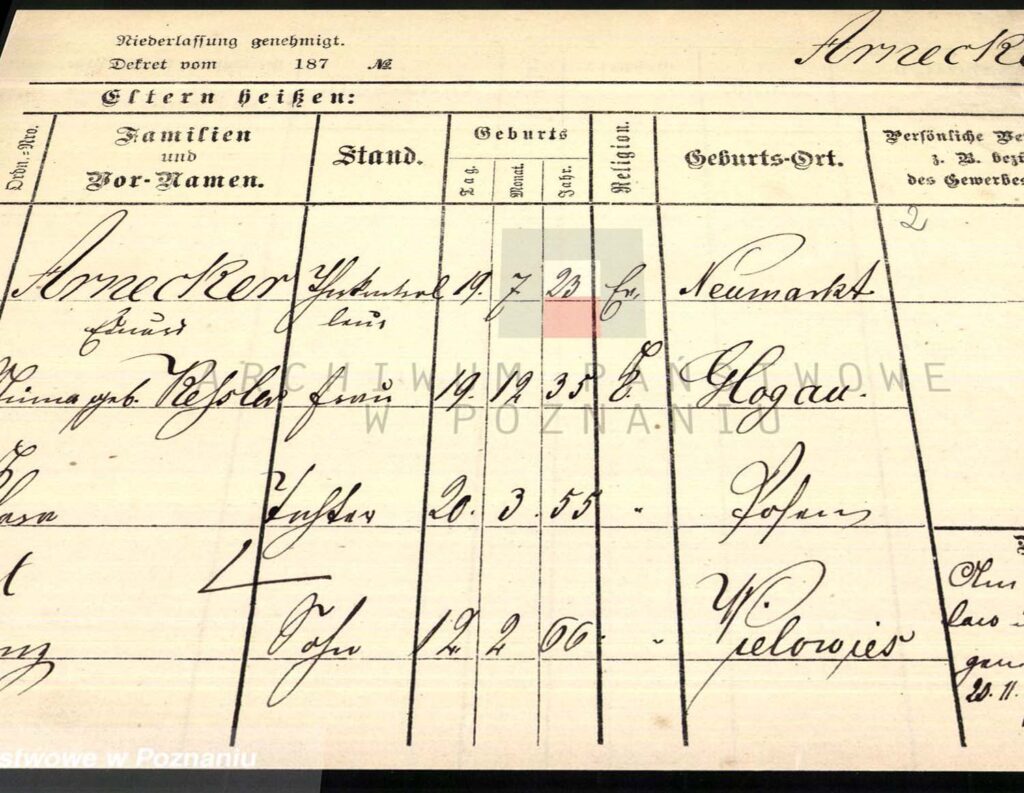 Niederlassung genehmigt.
Dekret vom 187 №
Arnecke
Eltern heißen:
Ordn.-Nro.
Familien
und
Vor-Namen.
Stand.
Geburts
Tag.
Monat.
Jahr.
Religion.
Geburts-Ort.
Persönliche Ve
z. B. bezü
des Gewerbes
2
Arnecker 19. 7 23 Ev. Neumarkt
Eduard
geb. Kessler Frau 19. 12 35 Glogau.
ARCHIWUM PAŃSTWOWE
W POZNANIU
Tochter 20. 3. 55 " Posen
Sohn 12 2 66 " Wielowies
20. 11.
stwowe w Poznaniu